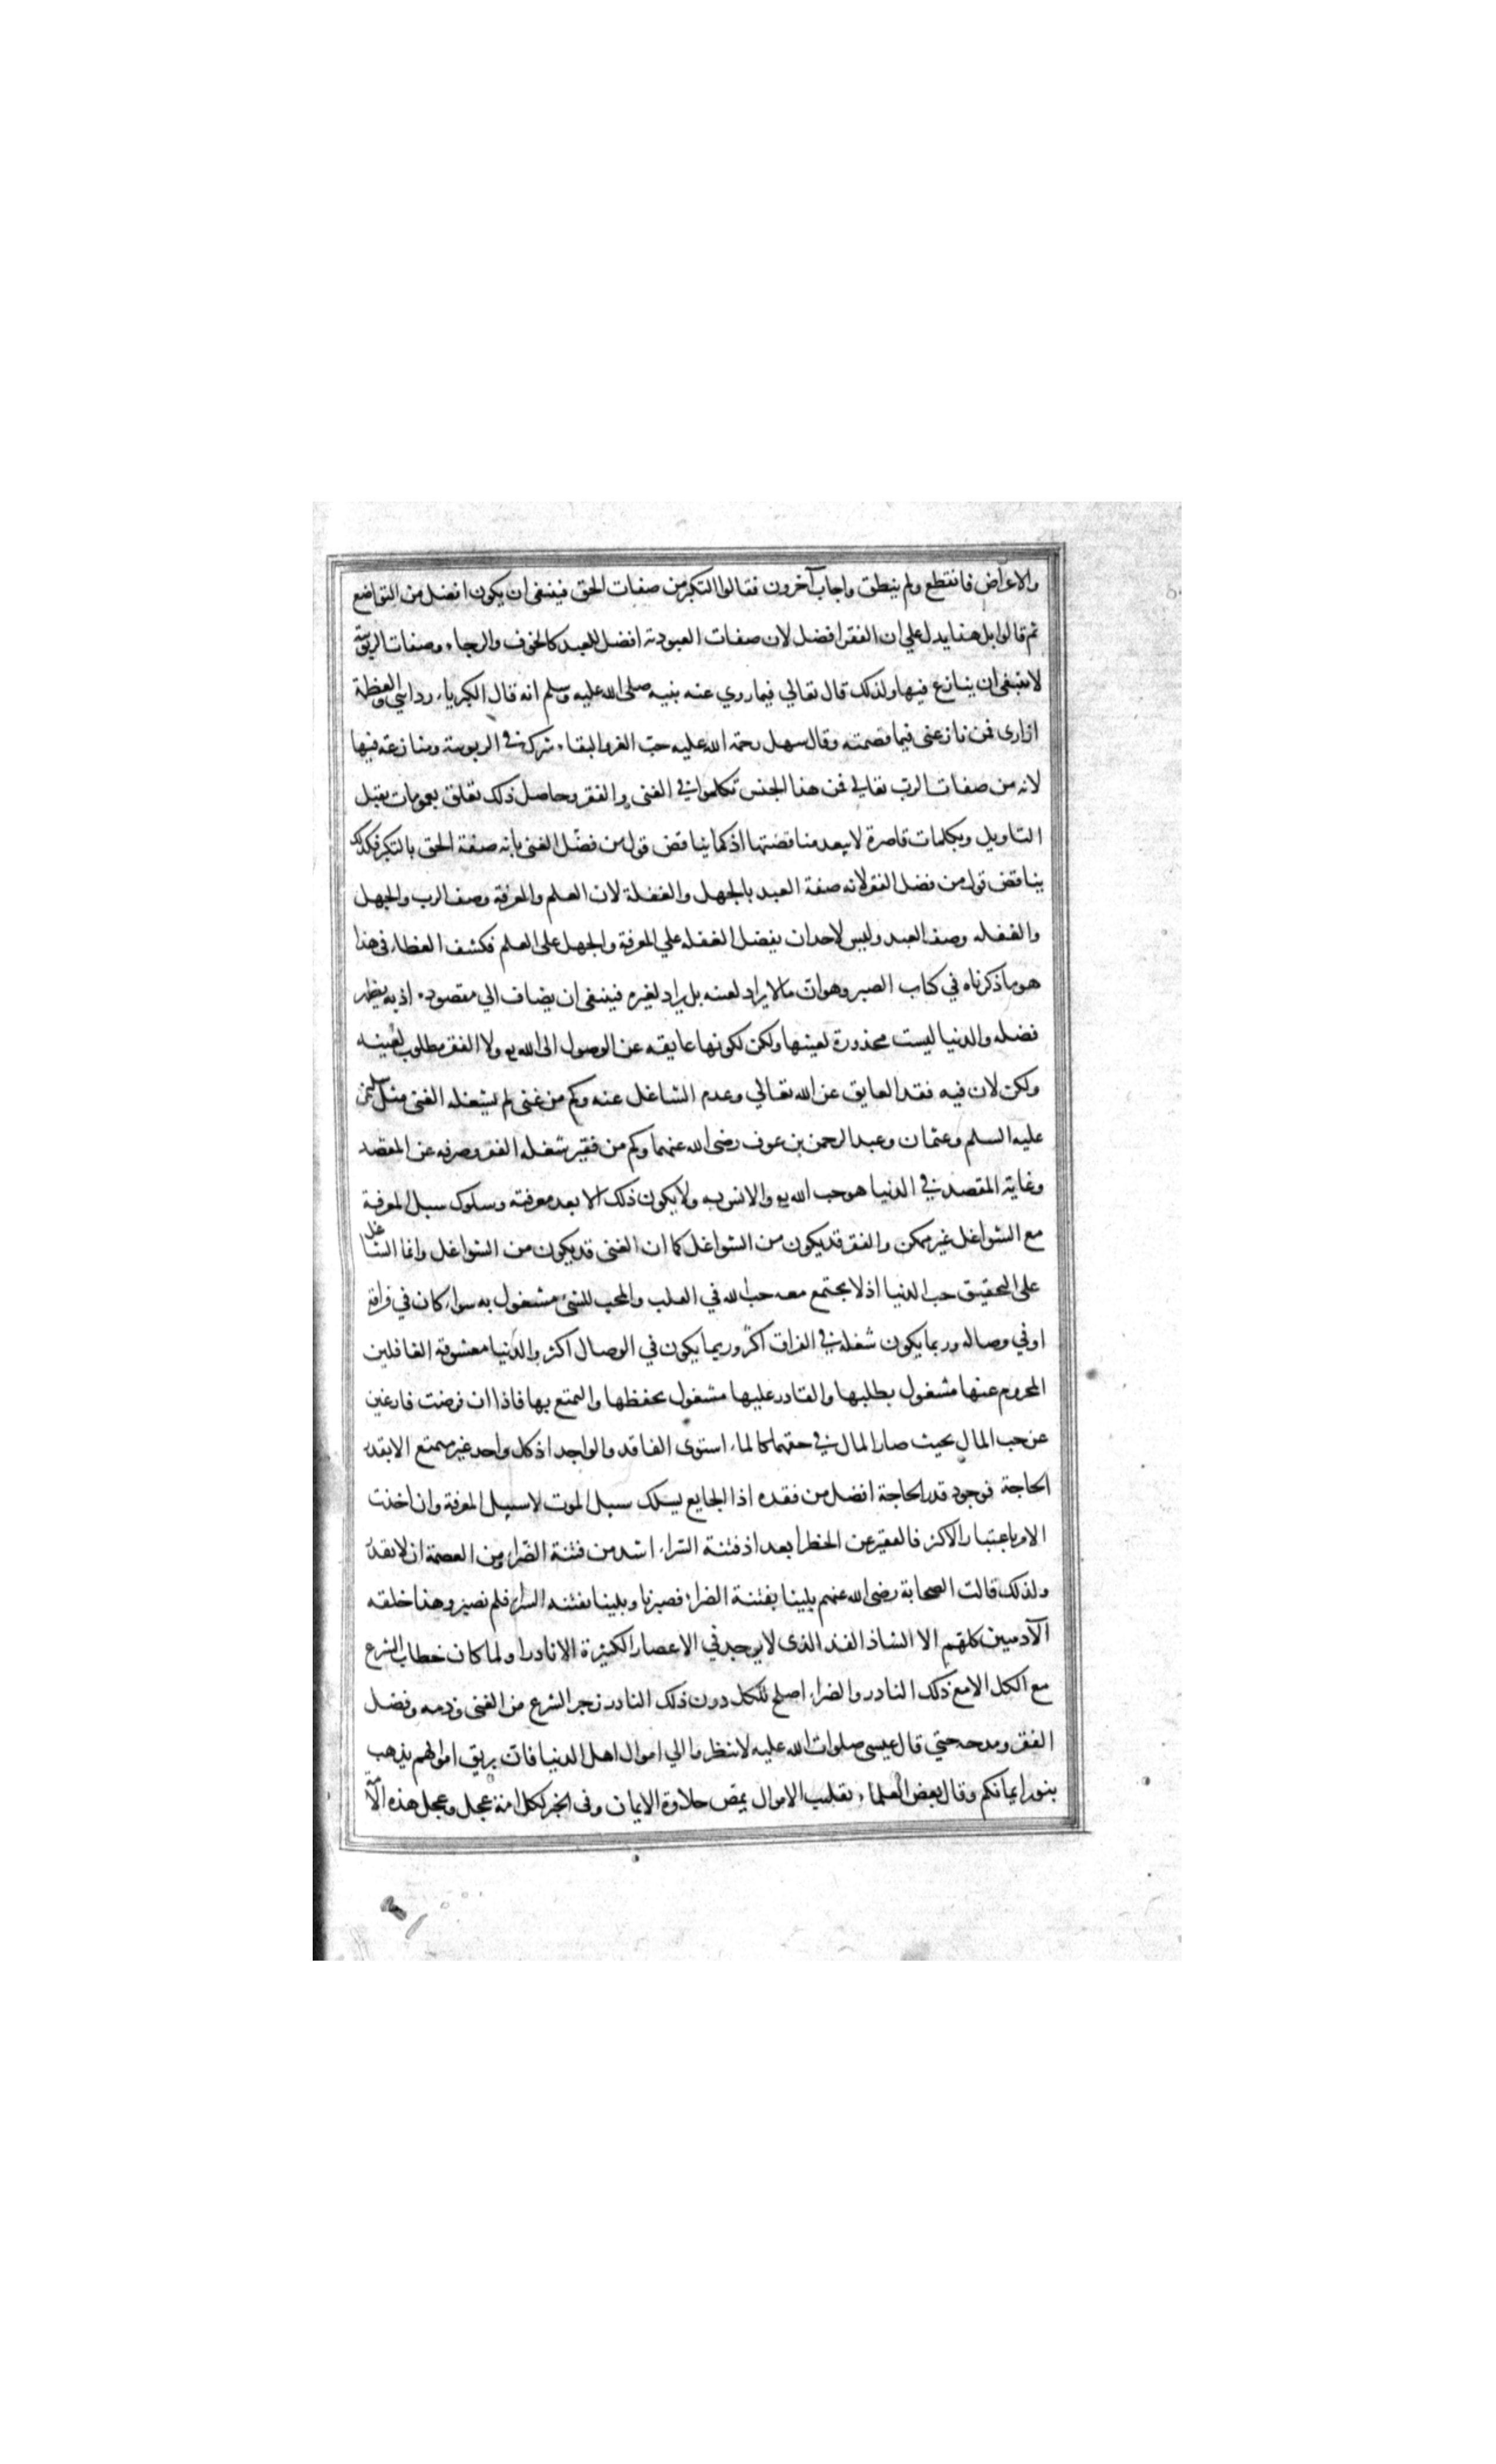 والاعراض فانقطع ولم ينطق واجاب آخرون فقالوا التكبر من صفات الحق فينبغي ان يكون افضل من التواضع
ثم قالوا بل هذا يدل علي ان الفقر افضل لان صفات العبودية افضل للعبد كالخوف والرجاء وصفات الربوبية
لا ينبغي ان ينازع فيها ولذلك قال تعالي فيما روي عنه نبيه صلى الله عليه وسلم انه قال الكبرياء ردايي والعظمة
ازارى فمن نازعنى فيهما قصمته وقال سهل رحمة الله عليه حبّ العز والبقاء شرك في الربوبية ومنازعة فيها
لانه من صفات الربّ تعالي فمن هذا الجنس تكلموا في الغنى والفقر وحاصل ذلك تعلق بعمومات يقبل
التاويل وبكلمات قاصرة لا يبعد مناقضتها اذ كما يناقض قول من فضّل الغنى بانه صفة الحق بالتكبر فكذلك
يناقض قول من فضل الفقر لانه صفة العبد بالجهل والغفلة لان العلم والمعرفة وصف الرب والجهل
والغفله وصف العبد وليس لاحد ان يفضل الغفله علي المعرفة والجهل على العلم فكشف الغطاء فى هذا
هو ما ذكرناه في كتاب الصبر وهو ان ما لا يراد لعينه بل يراد لغيره فينبغى ان يضاف الي مقصوده اذ به يظهر
فضله والدنيا ليست محذورة لعينها ولكن لكونها عايقه عن الوصول الى الله تع ولا الفقر مطلوب لعينه
ولكن لان فيه فقد العايق عن الله تعالي وعدم الشاغل عنه وكم من غنى لم يشغله الغنى مثل سليمن
عليه السلم وعثمان وعبد الرحمن بن عوف رضى الله عنهما وكم من فقير شغله الفقر وصرفه عن المقصد
وغاية المقصد في الدنيا هو حب الله تع والانس به ولا يكون ذلك الا بعد معرفته وسلوك سبيل المعرفة
مع الشواغل غير ممكن والفقر قد يكون من الشواغل كما ان الغنى قد يكون من الشواغل وانما الشاغل
على التحقيق حب الدنيا اذ لا يجتمع معه حب الله في القلب والمحب للشئ مشغول به سواء كان في فراقه
او في وصاله وربما يكون شغله في الفراق اكثر وربما يكون في الوصال اكثر والدنيا معشوقة الغافلين
المحروم عنها مشغول بطلبها والقادر عليها مشغول بحفظها والتمتع بها فاذا ان فرضت فارغين
عن حب المال بحيث صار المال في حقهما كالماء استوى الفاقد والواجد اذ كل واحد غير متمتع الا بقدر
الحاجة فوجود قدر الحاجة افضل من فقده اذ الجايع يسلك سبيل الموت لا سبيل المعرفة وان اخذت
الامر باعتبار الاكثر فالفقير عن الخطر ابعد اذ فتنة السّراء اشد من فتنة الضّراء ومن العصمة ان لا يقدر
ولذلك قالت الصحابة رضى الله عنهم بلينا بفتنة الضراء فصبرنا وبلينا بفتنه السراء فلم نصبر وهذا خلقه
الآدميين كلهم الا الشاذ الفذ الذى لا يوجد في الاعصار الكثيرة الا نادرا ولما كان خطاب الشرع
مع الكل لا مع ذلك النادر والضراء اصلح للكل دون ذلك النادر زجر الشرع من الغنى وذمه وفضل
الفقر ومدحه حتي قال عيسى صلوات الله عليه لا تنظروا الي اموال اهل الدنيا فان بريق اموالهم يذهب
بنور ايمانكم وقال بعض العلماء تقليب الاموال يمص حلاوة الايمان وفى الخبر لكل امة عجل وعجل هذه الامّة